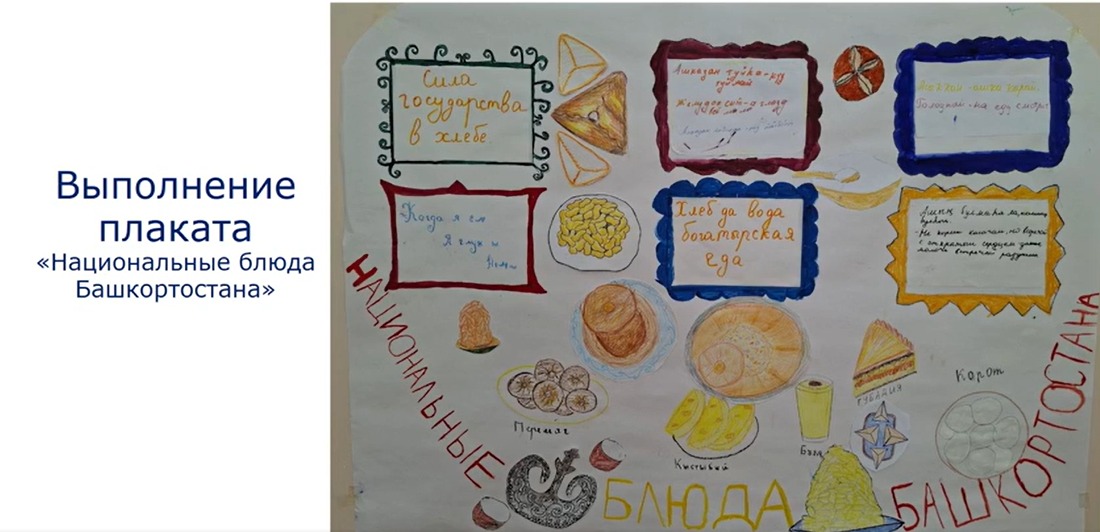 Выполнение
плаката
«Национальные блюда
Башкортостана»
Сила
государства
в хлебе.
Ашказан туйха - күҙ
туймай
Желудок сыт - а глазу
Голодный - на еду смотрит
Когда я ем
Я глух и
Хлеб да вода
богатырская
еда
с открытым сердцем
НАЦИОНАЛЬНЫЕ
БЛЮДА
БАШКОРТОСТАНА
Перемяч
Кыстыбый
Буза
ГУБАДИЯ
Корот